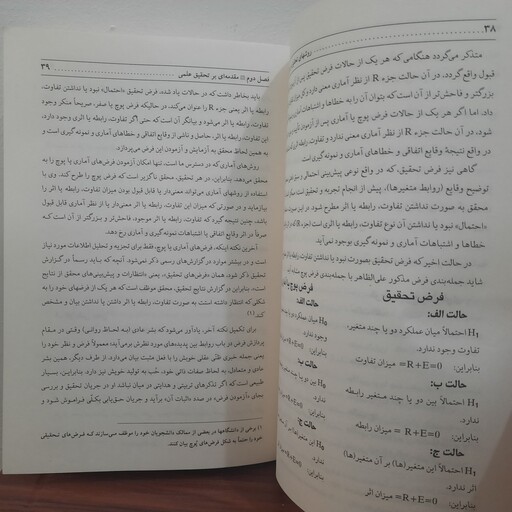 ۳۸
روشهای
متذکر می‌گردد هنگامی که هر یک از حالات فرض تحقیق
قبول واقع گردد، در آن حالت جزء R از نظر آماری معنی دارد
بزرگتر و فاحش‌تر از آن است که بتوان آن را به خطاها و اشتباهات
داد. اما اگر هر یک از حالات فرض پوچ یا آماری پس از آزمون
شود، در آن حالت جزء R از نظر آماری معنی ندارد و تفاوت، رابطه
در واقع نتیجهٔ وقایع اتفاقی و خطاهای آماری و نمونه‌گیری است
گاهی نیز فرض تحقیق، که در واقع نوعی پیش‌بینی احتمالی و
توضیح وقایع (روابط متغیرها)، پیش از انجام تجربه و تحقیق است
محقق به صورت نداشتن تفاوت، رابطه یا اثر مطرح شود.
«احتمال» نبود یا نداشتن آن نوع تفاوت، رابطه یا اثری است
خطاها و اشتباهات آماری و نمونه‌گیری بوجود نمی‌آیند
در حالت اخیر که فرض تحقیق بصورت نبود یا نداشتن تفاوت، رابطه یا
شاید جمله‌بندی فرض مذکور علی‌الظاهر با جمله‌بندی فرض پوچ مشابه
فرض تحقیق
فرض پوچ یا
حالت الف:
حالت الف:
H₁ احتمالاً میان عملکرد دو یا چند متغیر،
H₀ میان عملکرد دو یا
تفاوت وجود ندارد.
وجود ندارد.
بنابراین: R+E=0= میزان تفاوت
بنابراین:
حالت ب:
حالت ب:
H₁ احتمالاً بین دو یا چند متغیر رابطه
H₀ بین دو یا چند
وجود ندارد.
ندارد.
بنابراین: R+E=0= میزان رابطه
بنابراین:
حالت ج:
حالت ج:
H₁ احتمالاً این متغیر(ها) بر آن متغیر(ها)
H₀ این متغیر(ها) بر
اثر ندارد.
ندارد.
بنابراین: R+E=0= میزان اثر
بنابراین:
فصل دوم □ مقدمه‌ای بر تحقیق علمی
۳۹
باید بخاطر داشت که در حالات یاد شده، فرض تحقیق «احتمال» نبود یا نداشتن تفاوت،
رابطه یا اثر یعنی جزء R را عنوان می‌کند، در حالیکه فرض پوچ یا صفر، صریحاً منکر وجود
تفاوت، رابطه یا اثر می‌شود و بیانگر آن است که حتی اگر تفاوت، رابطه یا اثری وجود دارد،
این تفاوت، رابطه یا اثر، حاصل و ناشی از وقایع اتفاقی و خطاهای آماری و نمونه‌گیری است و
به همین لحاظ محقق به آزمایش و آزمودن این فرض می‌پردازد.
روش‌های آماری که در دسترس ما است، تنها امکان آزمودن فرض‌های آماری یا پوچ را به
محقق می‌دهند. بنابراین در هر تحقیق، محقق ناگزیر است که فرض پوچ را طرح کند. وی با
استفاده از روشهای آماری می‌تواند معنی‌دار یا قابل قبول بودن میزان تفاوت، رابطه یا اثر را
بیازماید و در صورتی که میزان این تفاوت، رابطه یا اثر معنی‌دار یا از نظر آماری قابل قبول
باشد، چنین نتیجه گیرد که تفاوت، رابطه یا اثر موجود، فاحش‌تر و بزرگتر از آن است که
صرفاً در اثر وقایع اتفاقی یا اشتباهات نمونه‌گیری و آماری رخ دهد.
آخرین نکته اینکه، فرض‌های آماری یا پوچ، فقط برای تجزیه و تحلیل اطلاعات مورد نیاز
است و در بیشتر موارد در گزارش‌های رسمی ذکر نمی‌شود. آنچه که باید رسماً در گزارش
تحقیق ذکر شود، همان «فرض‌های تحقیق»، یعنی انتظارات و پیش‌بینی‌های محقق از نتایج
است، بنابراین در گزارش نتایج تحقیق، محقق موظف است که از فرضهای خود به هر
شکلی که انتظار داشته است به صورت تفاوت، رابطه یا اثر داشتن یا نداشتن بیان و مشخص
کند.(۱)
برای تکمیل نکته آخر، یادآور می‌شود که بشر عادی (به لحاظ روانی) وقتی در مقام
پردازش فرض در باب روابط بین پدیده‌های مورد نظرش برمی‌آید معمولاً فرض و نظر خود را
یعنی جمله خبری ظنّی عقلی خویش را با فعل مثبت بیان می‌دارد. از طرف دیگر، همین بشر
عادی و متعادل، به لحاظ صفات ذاتی خود، حُب به تولید خویش نیز دارد. بنابراین، بسیار
طبیعی است که اگر تذکرهای تربیتی و هدایتی در میان نباشد او در جریان تحقیق و بررسی
بجای «آزمودن فرض»، در صدد «اثبات آن» برآید و جریان حق‌یابی بکلّی فراموش شود و
۱) برخی از دانشگاهها در بعضی از ممالک دانشجویان خود را موظف می‌سازند که فرض‌های تحقیقی
خود را حتماً به شکل فرض‌های پوچ بیان کنند.